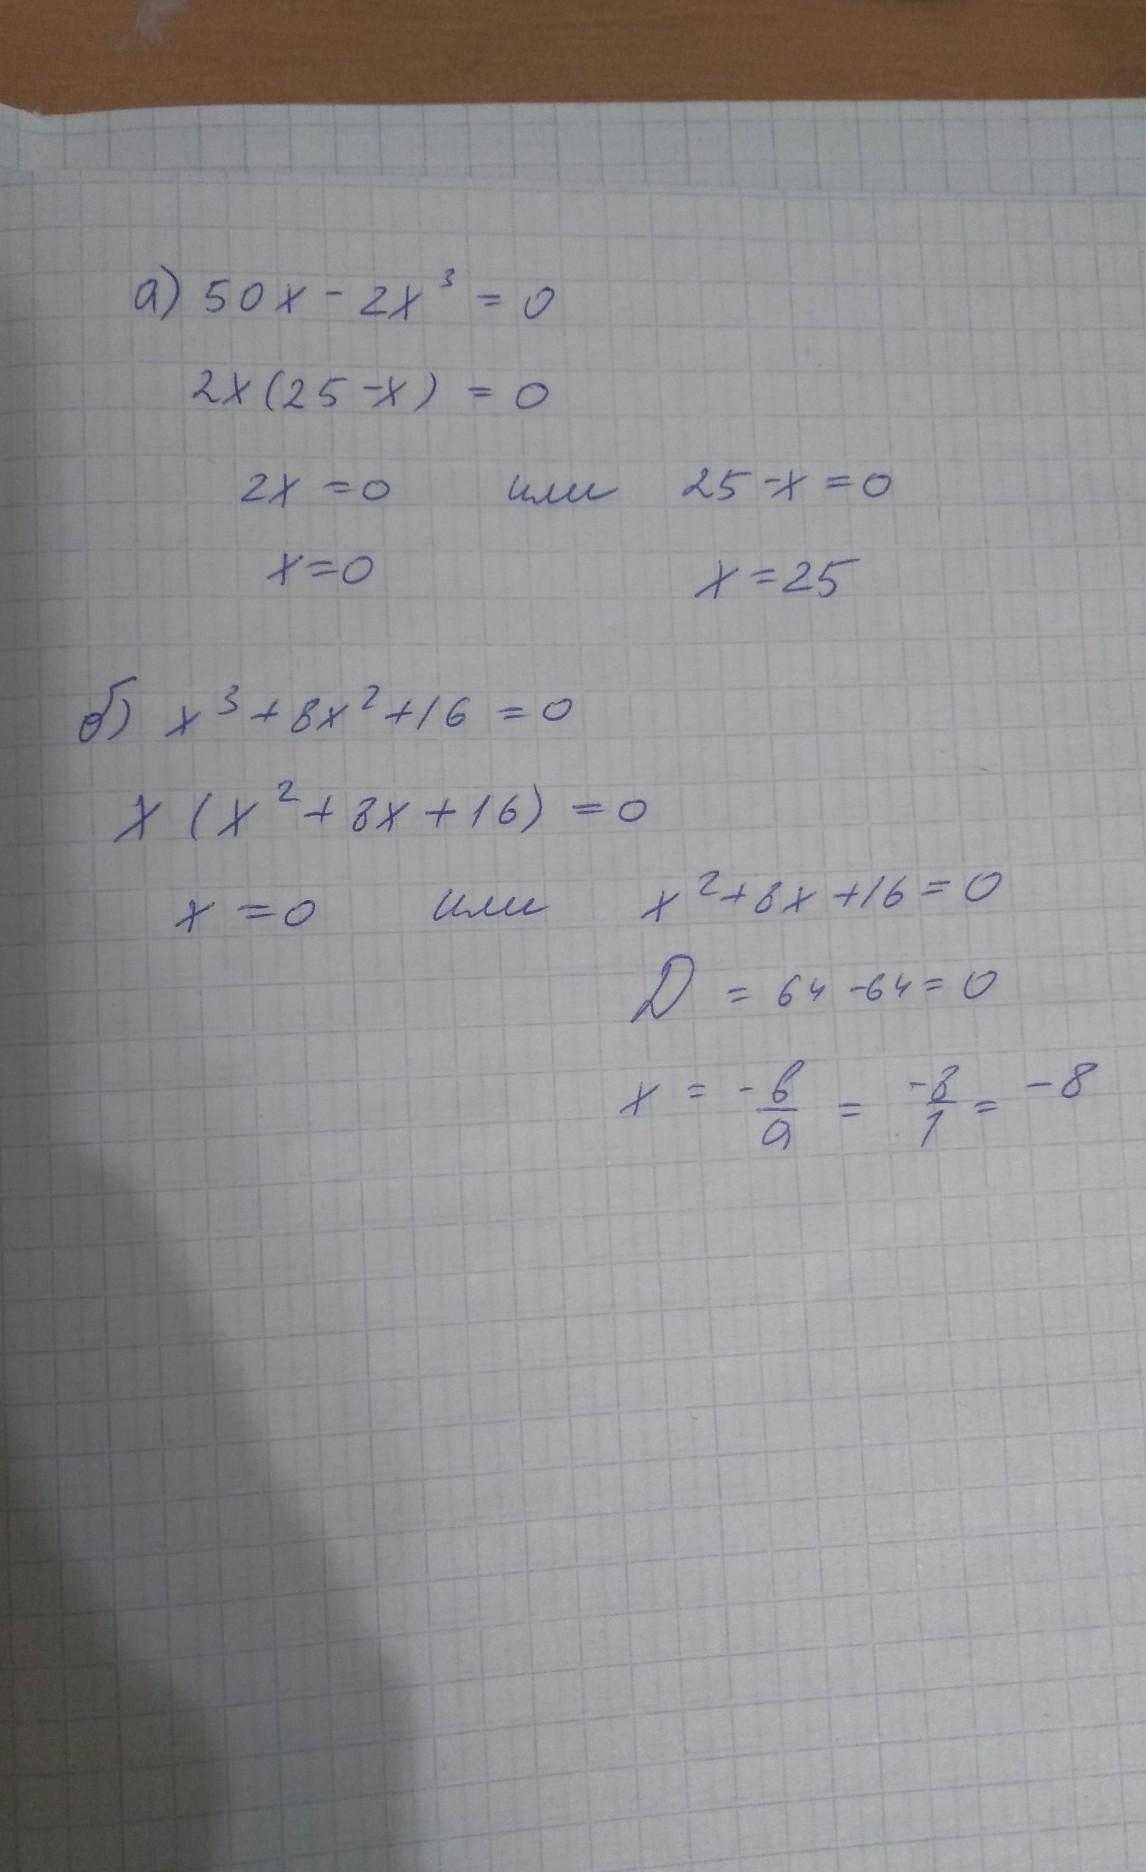 а) 50x - 2x³ = 0
2x(25-x) = 0
2x = 0 или 25-x = 0
x = 0 x = 25
б) x³ + 8x² + 16 = 0
x (x² + 8x + 16) = 0
x = 0 или x² + 8x + 16 = 0
D = 64 - 64 = 0
x = -b/a = -8/1 = -8